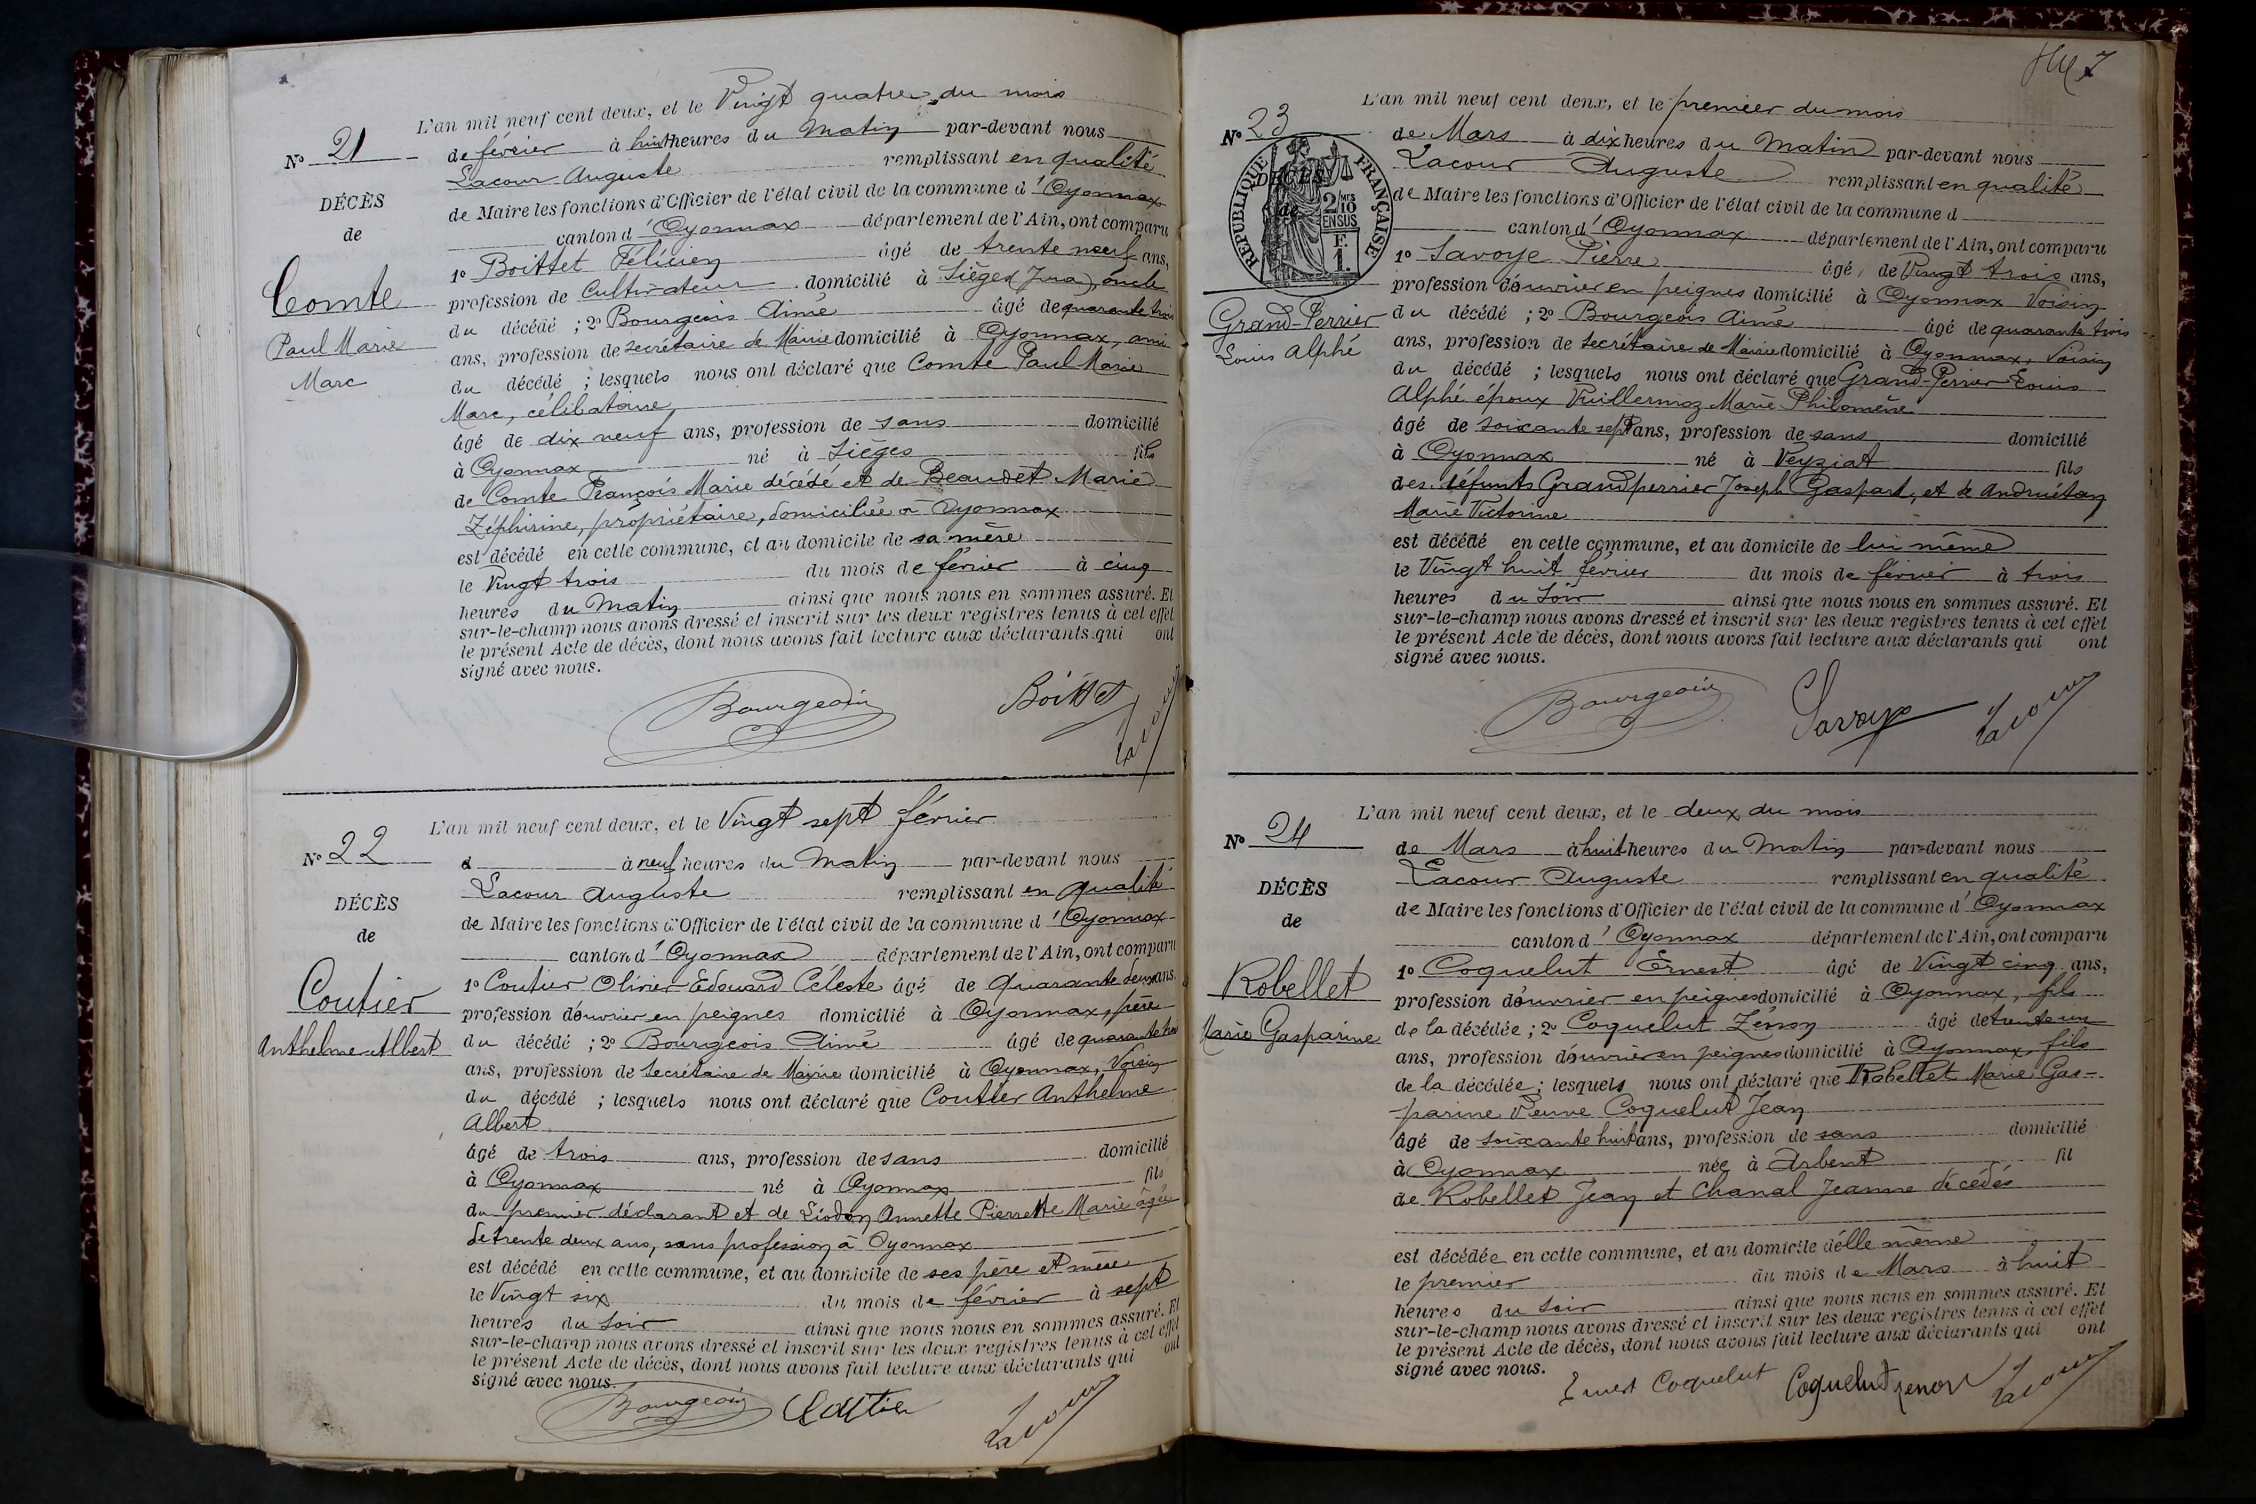 L'an mil neuf cent deux, et le Vingt quatre du mois
No 21
de février à huit heures du Matin par-devant nous
Lacour Auguste remplissant en qualité
DÉCÈS
de Maire les fonctions d'Officier de l'état civil de la commune d'Oyonnax
de
canton d'Oyonnax département de l'Ain, ont comparu
1o Boittet Félicien âgé de trente neuf ans,
Comte
profession de Cultivateur domicilié à Sièges (Jura), oncle
du décédé ; 2o Bourgeois Aimé âgé de quarante trois
Paul Marie
ans, profession de secrétaire de Mairie domicilié à Oyonnax, ami
Marc
du décédé ; lesquels nous ont déclaré que Comte Paul Marie
Marc, célibataire
âgé de dix neuf ans, profession de sans domicilié
à Oyonnax né à Sièges fils
de Comte François Marie décédé et de Beaudet Marie
Zéphirine, propriétaire, domiciliée à Oyonnax
est décédé en cette commune, et au domicile de sa mère
le Vingt trois du mois de février à cinq
heures du Matin ainsi que nous nous en sommes assuré. Et
sur-le-champ nous avons dressé et inscrit sur les deux registres tenus à cet effet
le présent Acte de décès, dont nous avons fait lecture aux déclarants qui ont
signé avec nous.
Bourgeois Boittet Lacour
L'an mil neuf cent deux, et le Vingt sept février
No 22
d à neuf heures du Matin par-devant nous
Lacour Auguste remplissant en qualité
DÉCÈS
de Maire les fonctions d'Officier de l'état civil de la commune d'Oyonnax
de
canton d'Oyonnax département de l'Ain, ont comparu
1o Coutier Olivier Edouard Céleste âgé de quarante deux ans,
Coutier
profession d'ouvrier en peignes domicilié à Oyonnax, père
Anthelme Albert
du décédé ; 2o Bourgeois Aimé âgé de quarante trois
ans, profession de secrétaire de Mairie domicilié à Oyonnax, Voisin
du décédé ; lesquels nous ont déclaré que Coutier Anthelme
Albert
âgé de trois ans, profession de sans domicilié
à Oyonnax né à Oyonnax fils
du premier déclarant et de Liodon Annette Pierrette Marie âgée
de trente deux ans, sans profession à Oyonnax
est décédé en cette commune, et au domicile de ses père et mère
le Vingt six du mois de février à sept
heures du Soir ainsi que nous nous en sommes assuré. Et
sur-le-champ nous avons dressé et inscrit sur les deux registres tenus à cet effet
le présent Acte de décès, dont nous avons fait lecture aux déclarants qui ont
signé avec nous.
Bourgeois Coutier Lacour
7
L'an mil neuf cent deux, et le premier du mois
No 23
de Mars à dix heures du Matin par-devant nous
Lacour Auguste remplissant en qualité
RÉPUBLIQUE FRANÇAISE
2/10 EN SUS
F. 1.
DÉCÈS
de
de Maire les fonctions d'Officier de l'état civil de la commune d
canton d'Oyonnax département de l'Ain, ont comparu
1o Savoye Pierre âgé de Vingt trois ans,
profession d'ouvrier en peignes domicilié à Oyonnax Voisin
Grand-Perrier
du décédé ; 2o Bourgeois Aimé âgé de quarante trois
Louis Alphé
ans, profession de secrétaire de Mairie domicilié à Oyonnax, Voisin
du décédé ; lesquels nous ont déclaré que Grand-Perrier Louis
Alphé époux Vuillermoz Marie Philomène
âgé de soixante sept ans, profession de sans domicilié
à Oyonnax né à Veyziat fils
des défunts Grandperrier Joseph Gaspard, et de Andruétan
Marie Victorine
est décédé en cette commune, et au domicile de lui même
le Vingt huit février du mois de février à trois
heures du Soir ainsi que nous nous en sommes assuré. Et
sur-le-champ nous avons dressé et inscrit sur les deux registres tenus à cet effet
le présent Acte de décès, dont nous avons fait lecture aux déclarants qui ont
signé avec nous.
Bourgeois Savoye Lacour
L'an mil neuf cent deux, et le deux du mois
No 24
de Mars à huit heures du Matin par-devant nous
Lacour Auguste remplissant en qualité
DÉCÈS
de Maire les fonctions d'Officier de l'état civil de la commune d'Oyonnax
de
canton d'Oyonnax département de l'Ain, ont comparu
1o Coquelut Ernest âgé de Vingt cinq ans,
Robellet
profession d'ouvrier en peignes domicilié à Oyonnax, fils
Marie Gasparine
de la décédée ; 2o Coquelut Zénon âgé de trente un
ans, profession d'ouvrier en peignes domicilié à Oyonnax, fils
de la décédée ; lesquels nous ont déclaré que Robellet Marie Gas-
parine Veuve Coquelut Jean
âgé de soixante huit ans, profession de sans domicilié
à Oyonnax née à Arbent fil
de Robellet Jean et Chanal Jeanne décédés
est décédée en cette commune, et au domicile d'elle même
le premier du mois de Mars à huit
heures du Soir ainsi que nous nous en sommes assuré. Et
sur-le-champ nous avons dressé et inscrit sur les deux registres tenus à cet effet
le présent Acte de décès, dont nous avons fait lecture aux déclarants qui ont
signé avec nous.
Ernest Coquelut Coquelut Zenon Lacour